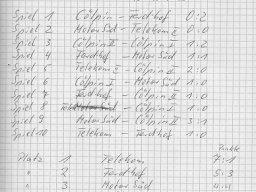 Spiel 1 Cölpin - Ferdhof - 0:2
Spiel 2 Motor Süd - Telekom II 0:0
Spiel 3 Cölpin II - Cölpin I 1:2
Spiel 4 Ferdhof - Motor Süd 1:1
Spiel 5 Telekom - Cölpin II 2:0
Spiel 6 Cölpin I - Motor Süd 1:0
Spiel 7 Ferdhof - Cölpin II 1:0
Spiel 8 - Cölpin I 1:0
Spiel 9 Motor Süd - Cölpin II 3:1
Spiel 10 Telekom - Ferdhof 1:0
Punkte
Platz 1 Telekom 7:1
" 2 Ferdhof 5:3
" 3 Motor Süd 4:4